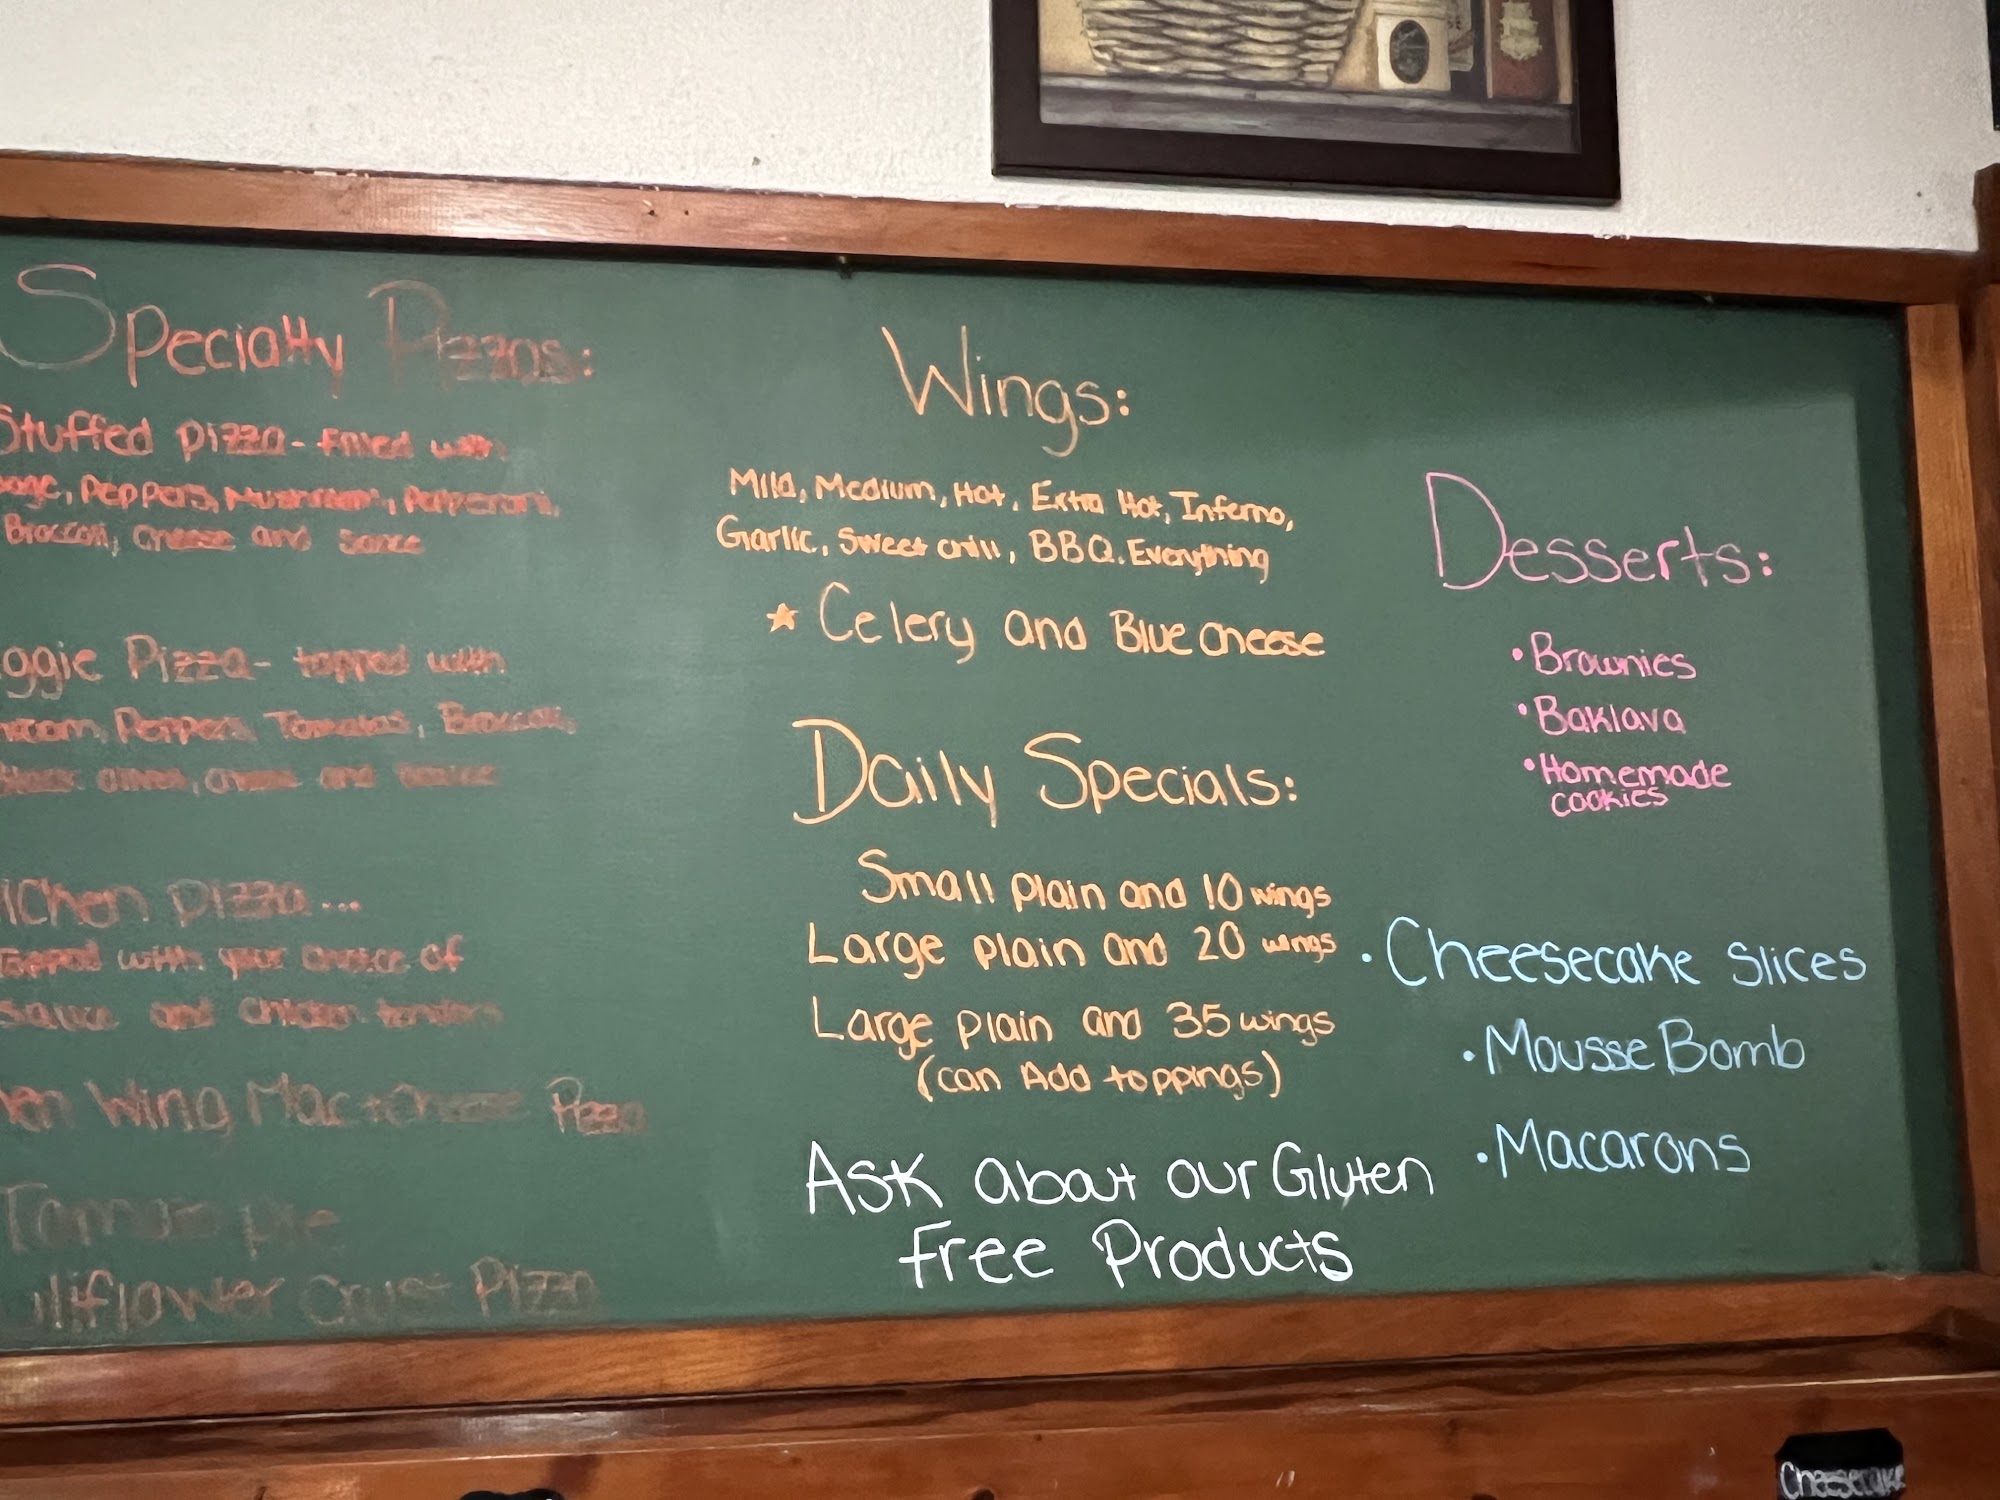 Specialty Pizzas:
Stuffed pizza- filled with
Peppers, Mushrooms, Pepperoni,
Broccoli, cheese and sauce
Pizza- topped with
Peppers, Tomatoes, Broccoli,
Black olives, cheese and sauce
pizza...
Topped with your choice of
sauce and chicken tenders
Wing Mac + Cheese Pizza
Tomato pie
Crust Pizza
Wings:
Mild, Medium, Hot, Extra Hot, Inferno,
Garlic, Sweet chili, BBQ. Everything
★ Celery and Blue cheese
Daily Specials:
Small plain and 10 wings
Large plain and 20 wings
Large plain and 35 wings
(can Add toppings)
Ask about our Gluten
free Products
Desserts:
• Brownies
• Baklava
• Homemade
cookies
• Cheesecake slices
• Mousse Bomb
• Macarons
Cheesecake